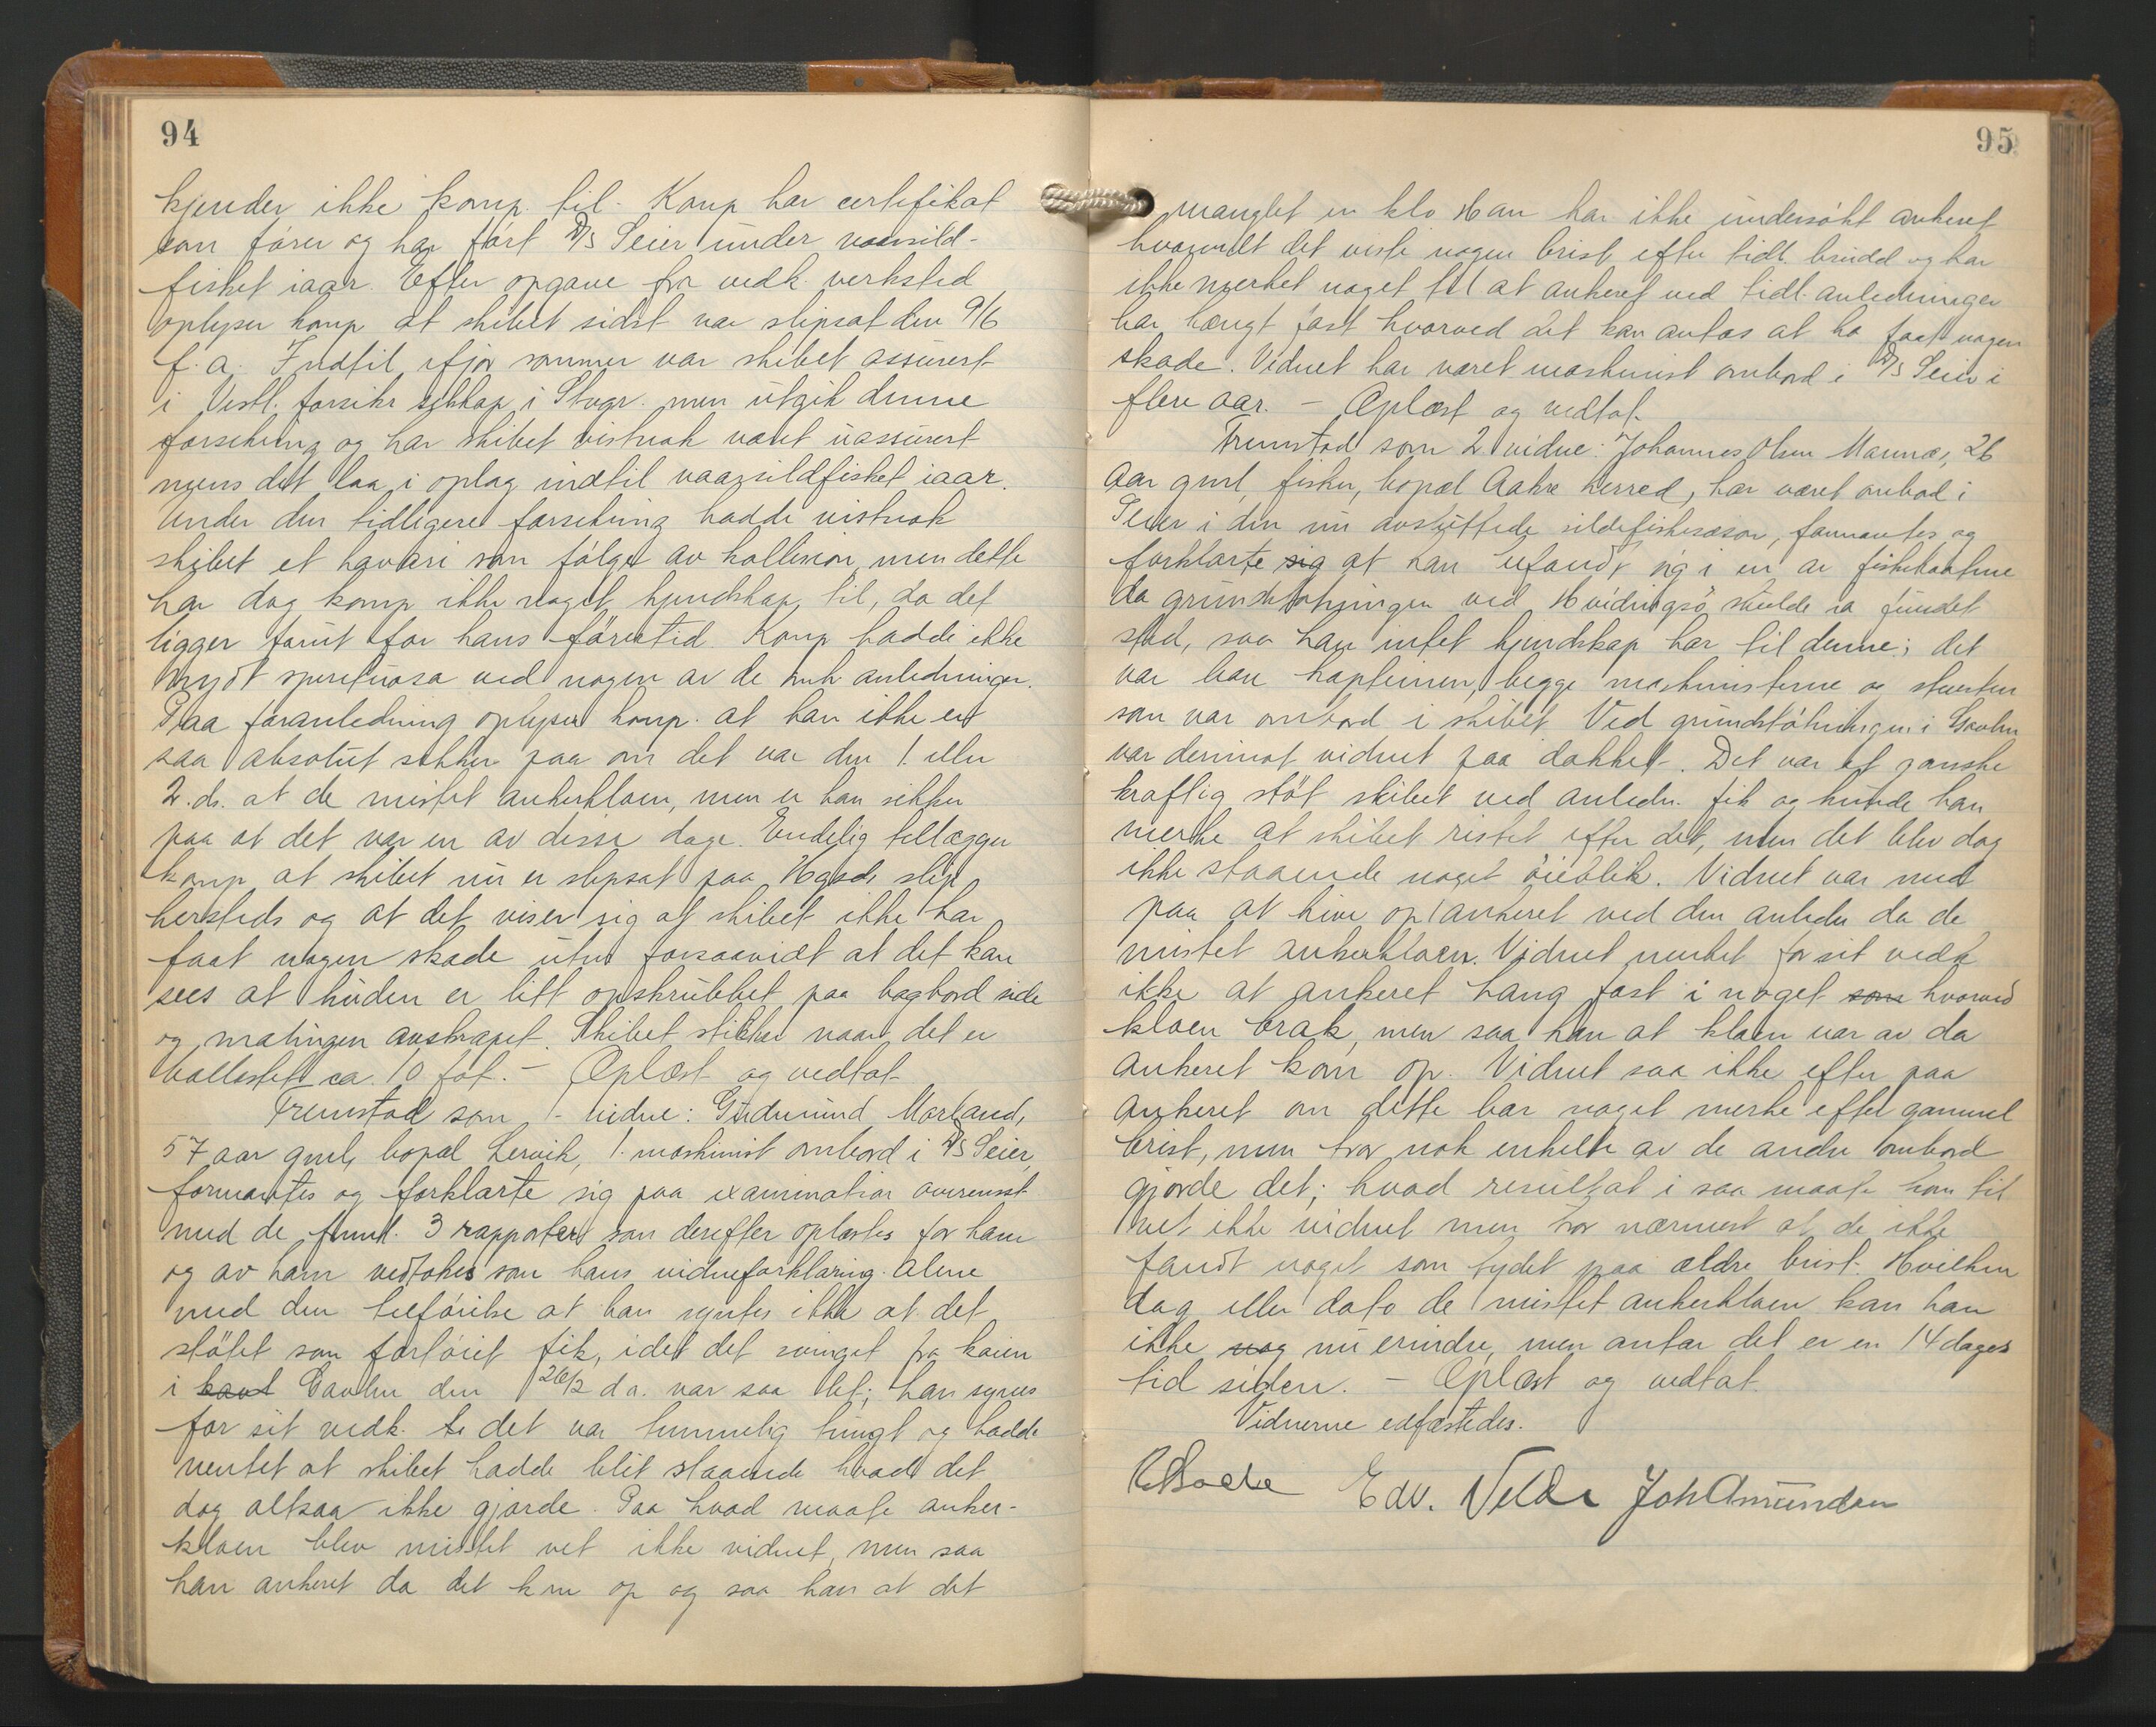 94
kjender ikke komp. til. Komp har certifikat
som fører og har ført D/S Seier under vaarsild-
fisket iaar. Efter opgave fra vedk. verksted
oplyser komp at skibet sidst var slipsat den 9/6
f.a. Indtil ifjor sommer var skibet assurert
i Vestl. forsikr selskap i Stvgr. men utgik denne
forsikring og har skibet vistnok været uassurert
mens det laa i oplag indtil vaarsildfisket iaar.
Under den tidligere forsikring hadde vistnok
skibet et havari som følge av kollision, men dette
har dog komp ikke noget kjendskap til, da det
ligger forut for hans førertid. Komp hadde ikke
nydt spirituosa ved nogen av de anledninger.
Paa foranledning oplyser komp. at han ikke er
saa absolut sikker paa om det var den 1. eller
2. ds. at de mistet ankerkloen, men er han sikker
paa at det var en av disse dage. Endelig tillægger
komp at skibet nu er slipsat paa slip
hersteds og at det viser sig at skibet ikke har
faat nogen skade uten forsaavidt at det kan
sees at huden er litt opskrubbet paa bagbord side
og malingen avskrapet. Skibet stikker naar det er
ballastet ca. 10 fot. – Oplæst og vedtat
Fremstod som 1- vidne: Gudmund Marland,
57 aar gml, bopæl Lervik, 1. maskinist ombord i D/S Seier,
formantes og forklarte sig paa examination overensst
med de freml. 3 rapporter som derefter oplæstes for ham
og av ham vedtokes som hans vidneforklaring. Alene
med den tilføielse at han syntes ikke at det
støtet som fartøiet fik, idet det svinget fra kaien
i Gavlen den 26/2 d.a. var saa let; han synes
for sit vedk. at det var temmelig tungt og hadde
ventet at skibet hadde blit staaende hvad det
dog altsaa ikke gjorde. Paa hvad maate anker-
kloen blev mistet vet ikke vidnet, men saa
han ankeret da det kom op og saa han at det
95
manglet en klo. Han har ikke undersøkt ankeret
hvorvidt det viste nogen brist efter tidl. brudd og har
ikke merket noget til at ankeret ved tidl. anledninger
har hængt fast hvorved det kan antas at ha faat nogen
skade. Vidnet har været maskinist ombord i D/S Seier i
flere aar. – Oplæst og vedtat
Fremstod som 2. vidne: Johannes Olsen Mannes, 26
aar gml, fisker, bopæl Aakre herred, har været ombord i
Seier i den nu avsluttede sildefiskesæson, formantes og
forklarte sig at han befandt sig i en av fiskebaatene
da grundstøtningen ved Hvidingsø skulde ha fundet
sted, saa han intet kjendskap har til denne; det
var bare kapteinen, begge maskinisterne og stuerten
som var ombord i skibet. Ved grundstøtningen i Gavlen
var derimot vidnet paa dækket. Det var et ganske
kraftig støt skibet ved anledn. fik og kunde han
merke at skibet ristet efter det, men det blev dog
ikke staaende noget øieblik. Vidnet var med
paa at hive op ankeret ved den anledn da de
mistet ankerkloen. Vidnet merket for sit vedk
ikke at ankeret hang fast i noget som hvorved
kloen brak, men saa han at kloen var av da
ankeret kom op. Vidnet saa ikke efter paa
ankeret om dette bar noget merke efter gammel
brist, men tror nok enkelte av de andre ombord
gjorde det; hvad resultat i saa maate kom til
vet ikke vidnet men tror nærmest at de ikke
fandt noget som tydet paa ældre brist. Hvilken
dag eller dato de mistet ankerkloen kan han
ikke nog nu erindre, men antar det er en 14 dages
tid siden. – Oplæst og vedtat.
Vidnerne edfæstedes.
Edv. Velde Joh Amundsen